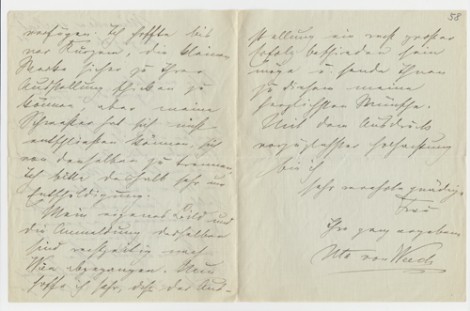 verfügen. Ich hoffte bis
vor Kurzem, die kleine
sicher zu Ihrer
Ausstellung schicken zu
können, aber meine
Schwester hat sich nicht
entschließen können, sich
von derselben zu trennen.
Ich bitte deshalb sehr um
Entschuldigung.
Mein eigenes Bild und
die Anmeldung desselben
sind rechtzeitig nach
Wien abgegangen. Nun
hoffe ich sehr, daß der Aus-
58
stellung ein recht großer
Erfolg beschieden sein
möge u sende Ihnen
zu diesem meine
herzlichsten Wünsche.
Mit dem Ausdruck
vorzüglichster Hochachtung
bin ich
sehr verehrte gnädige
Frau
Ihre ganz ergebene
von